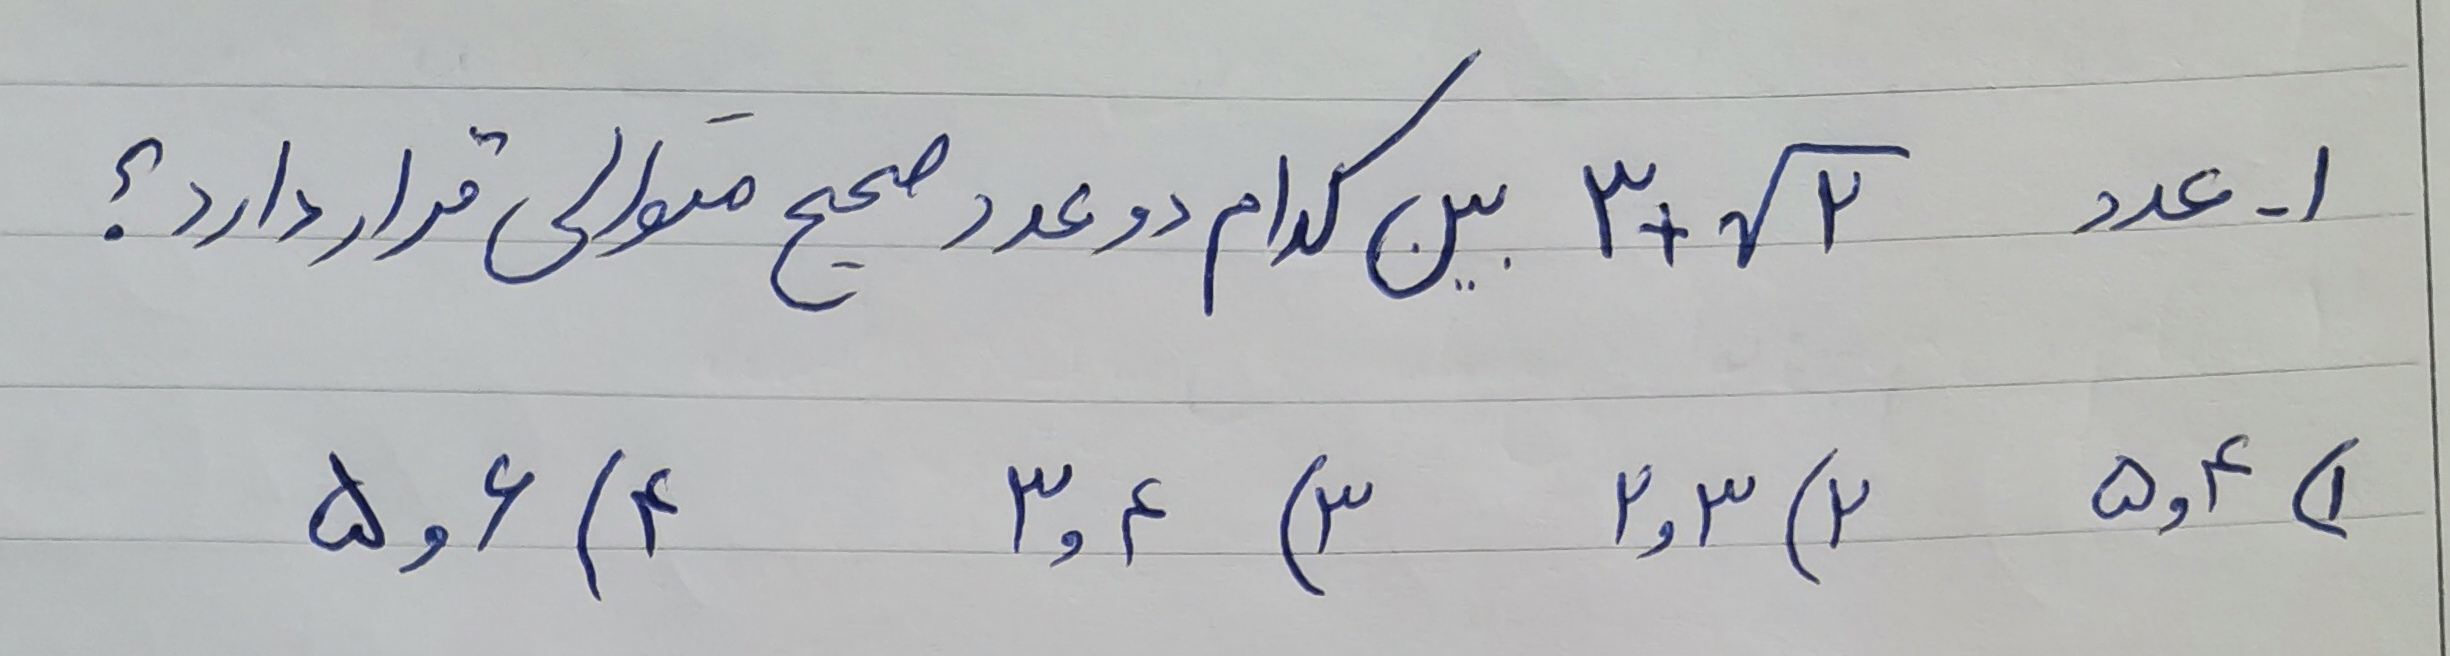 ۱- عدد ۳+√۲ بین کدام دو عدد صحیح متوالی قرار دارد؟
۱) ۴ و ۵ ۲) ۳ و ۲ ۳) ۴ و ۳ ۴) ۶ و ۵